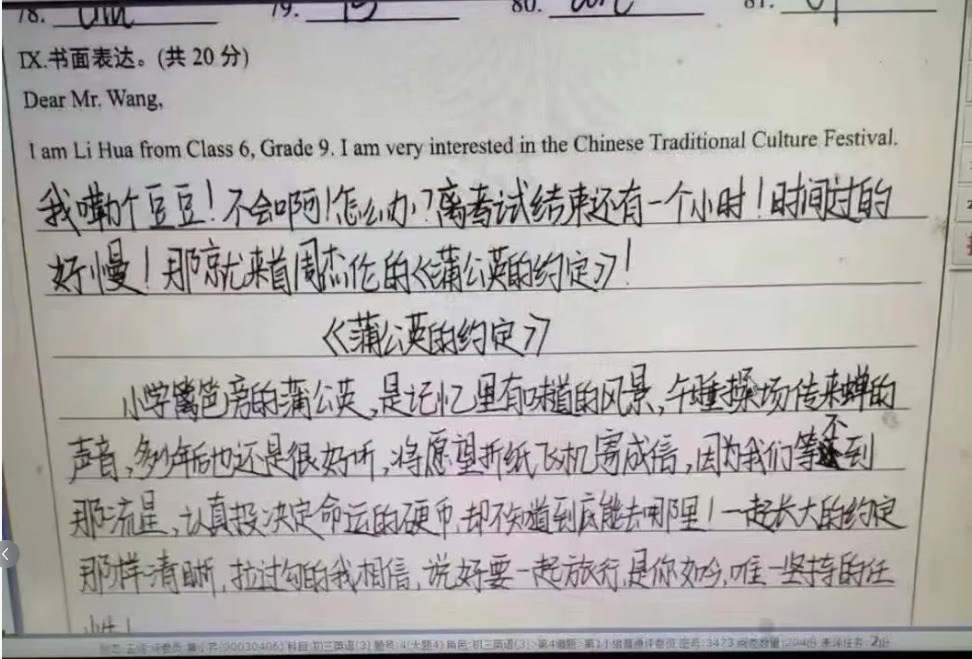 78. 79. 80. 81.
IX.书面表达。(共 20 分)
Dear Mr. Wang,
I am Li Hua from Class 6, Grade 9. I am very interested in the Chinese Traditional Culture Festival.
我嘞个豆豆!不会啊!怎么办?离考试结束还有一个小时!时间过的
好慢!那就来首周杰伦的《蒲公英的约定》!
《蒲公英的约定》
小学篱笆旁的蒲公英,是记忆里有味道的风景,午睡操场传来蝉的
声音,多少年后也还是很好听,将愿望折纸飞机寄成信,因为我们等不到
那流星,认真投决定命运的硬币,却不知道到底能去哪里!一起长大的约定
那样清晰,拉过勾的我相信,说好要一起旅行,是你如今,唯一坚持的任